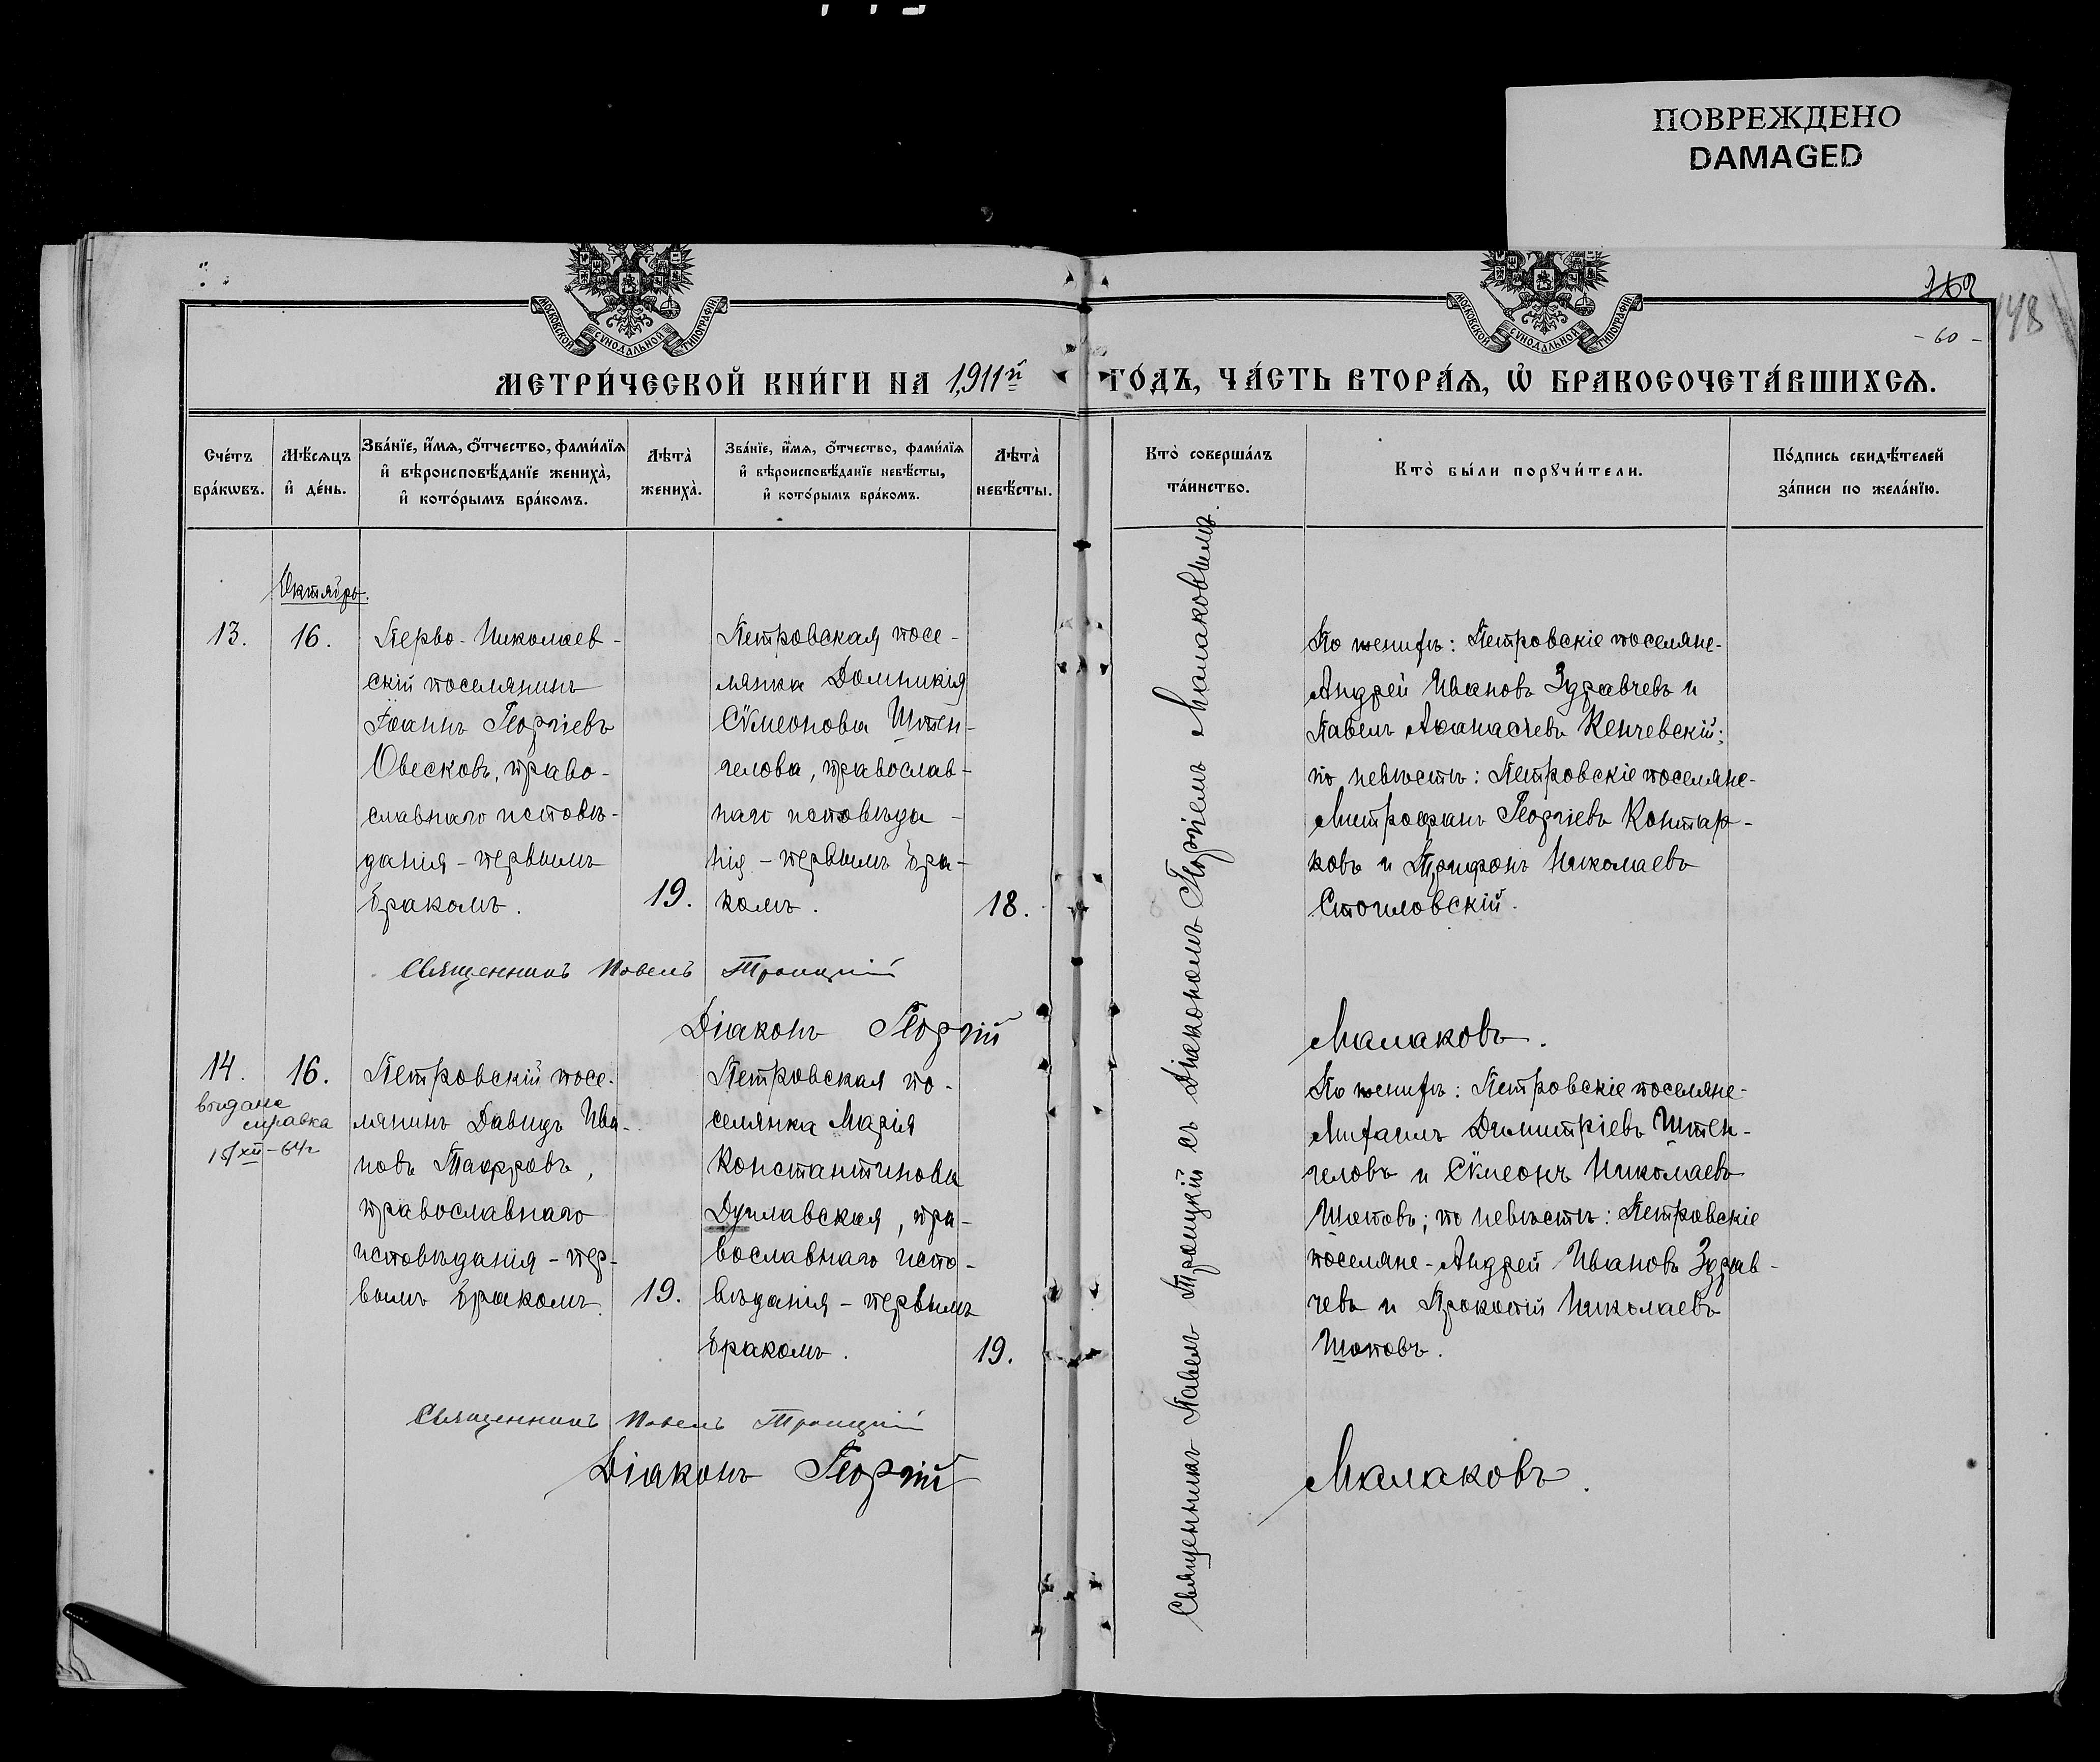 ПОВРЕЖДЕНО
DAMAGED
148
- 60 -
МОСКОВСКОЙ СѴНОДАЛЬНОЙ ТИПОГРАФІИ
МОСКОВСКОЙ СѴНОДАЛЬНОЙ ТИПОГРАФІИ
МЕТРИ́ЧЕСКОЙ КНИ́ГИ НА 1911й ГО́ДЪ, ЧА́СТЬ ВТОРА́Ѧ, Ѡ҆ БРАКОСОЧЕТА́ВШИХСѦ.
Сче́тъ
бра́кѡвъ.
Мѣ́сѧцъ
и҆ де́нь.
Зва́нїе, и҆́мѧ, ѻ҆́тчество, фами́лїѧ
и҆ вѣроисповѣ́данїе жениха̀,
и҆ кото́рымъ бра́комъ.
Лѣ́та̀
жениха̀.
Зва́нїе, и҆́мѧ, ѻ҆́тчество, фами́лїѧ
и҆ вѣроисповѣ́данїе невѣ́сты,
и҆ кото́рымъ бра́комъ.
Лѣ́та̀
невѣ́сты.
Кто̀ соверша́лъ
та́инство.
Кто̀ бы́ли порꙋчи́тели.
По́дпись свидѣ́телей
за́писи по жела́нїю.
Октябрь.
13.
16.
Перво-Николаев-
скій поселянинъ
Іоаннъ Георгіевъ
Овесковъ, право-
славнаго исповѣ-
данія - первымъ
бракомъ.
19.
Петровская посе-
лянка Домникія
Сѵмеонова Штен-
гелова, православ-
наго исповѣда-
нія - первымъ бра-
комъ.
18.
Священникъ Павелъ Троицкій съ Діакономъ Георгіемъ Малаковымъ.
По женихѣ: Петровскіе поселяне-
Андрей Ивановъ Здравчевъ и
Павелъ Аѳанасіевъ Кенчевскій;
по невѣстѣ: Петровскіе поселяне-
Митрофанъ Георгіевъ Контар-
ковъ и Трифонъ Николаевъ
Стоиловскій.
Священникъ Павелъ Троицкій
Діаконъ Георгій Малаковъ.
14.
16.
выдана
справка
15/XII-64г
Петровскій посе-
лянинъ Давидъ Ива-
новъ Тафровъ,
православнаго
исповѣданія - пер-
вымъ бракомъ.
19.
Петровская по-
селянка Марія
Константинова
Дуплавская, пра-
вославнаго испо-
вѣданія - первымъ
бракомъ.
19.
По женихѣ: Петровскіе поселяне-
Михаилъ Димитріевъ Штен-
геловъ и Сѵмеонъ Николаевъ
Шоповъ; по невѣстѣ: Петровскіе
поселяне - Андрей Ивановъ Здрав-
чевъ и Прокопій Николаевъ
Шоповъ.
Священникъ Павелъ Троицкій
Діаконъ Георгій Малаковъ.